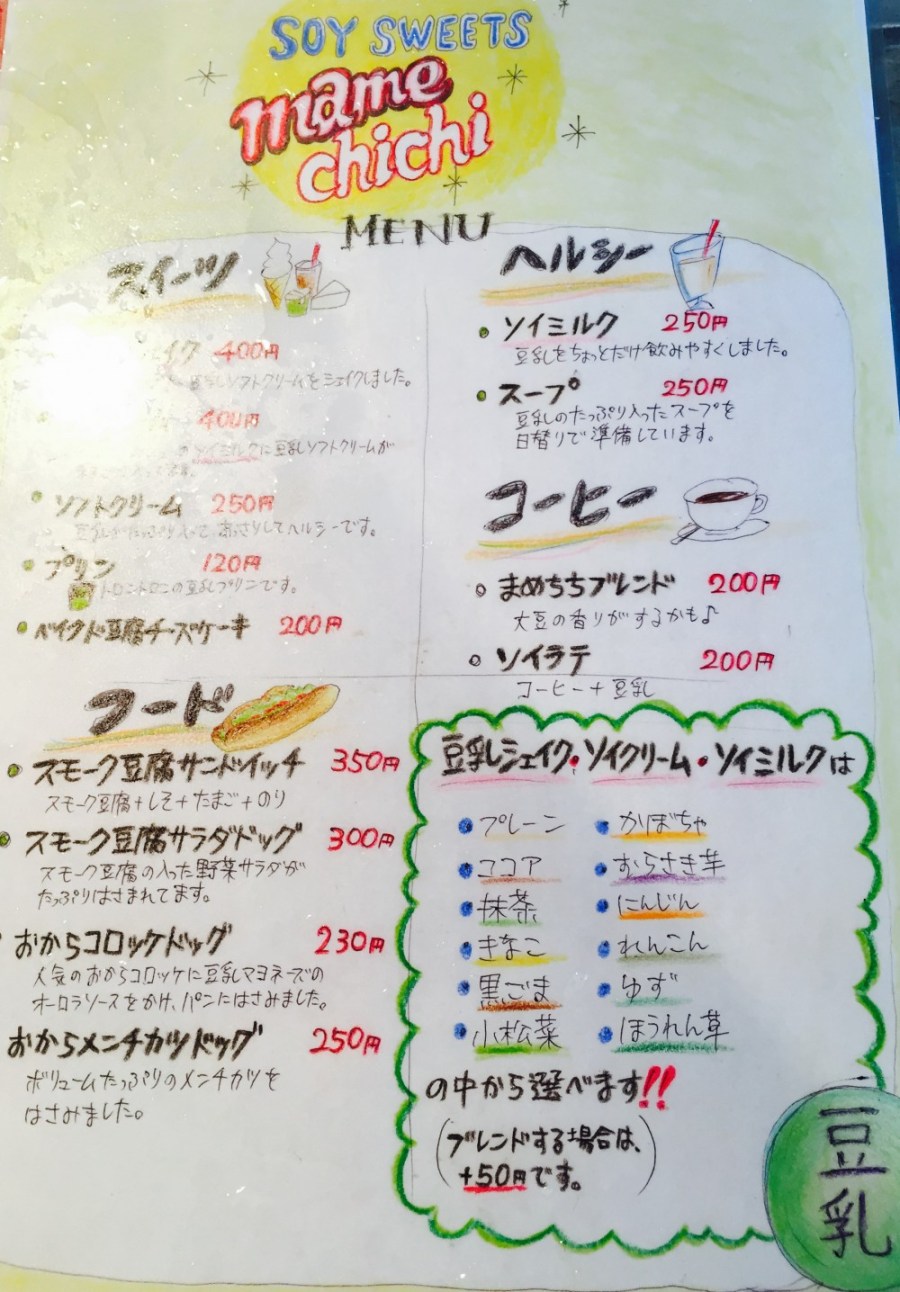 SOY SWEETS
mame
chichi
MENU
スイーツ
イク 400円
豆乳ソフトクリームをシェイクしました。
400円
ソイミルクに豆乳ソフトクリームが
ソフトクリーム 250円
豆乳がたっぷり入って、あっさりしてヘルシーです。
プリン 120円
トロントロンの豆乳プリンです。
ベイクド豆腐チーズケーキ 200円
フード
スモーク豆腐サンドイッチ 350円
スモーク豆腐+しそ+たまご+のり
スモーク豆腐サラダドッグ 300円
スモーク豆腐の入った野菜サラダが
たっぷりはさまれてます。
おからコロッケドッグ 230円
人気のおからコロッケに豆乳マヨネーズの
オーロラソースをかけ、パンにはさみました。
おからメンチカツドッグ 250円
ボリュームたっぷりのメンチカツを
はさみました。
ヘルシー
ソイミルク 250円
豆乳をちょっとだけ飲みやすくしました。
スープ 250円
豆乳のたっぷり入ったスープを
日替りで準備しています。
コーヒー
まめちちブレンド 200円
大豆の香りがするかも♪
ソイラテ 200円
コーヒー+豆乳
豆乳シェイク・ソイクリーム・ソイミルクは
プレーン かぼちゃ
ココア むらさき芋
抹茶 にんじん
きなこ れんこん
黒ごま ゆず
小松菜 ほうれん草
の中から選べます!!
(ブレンドする場合は、
+50円です。)
豆乳